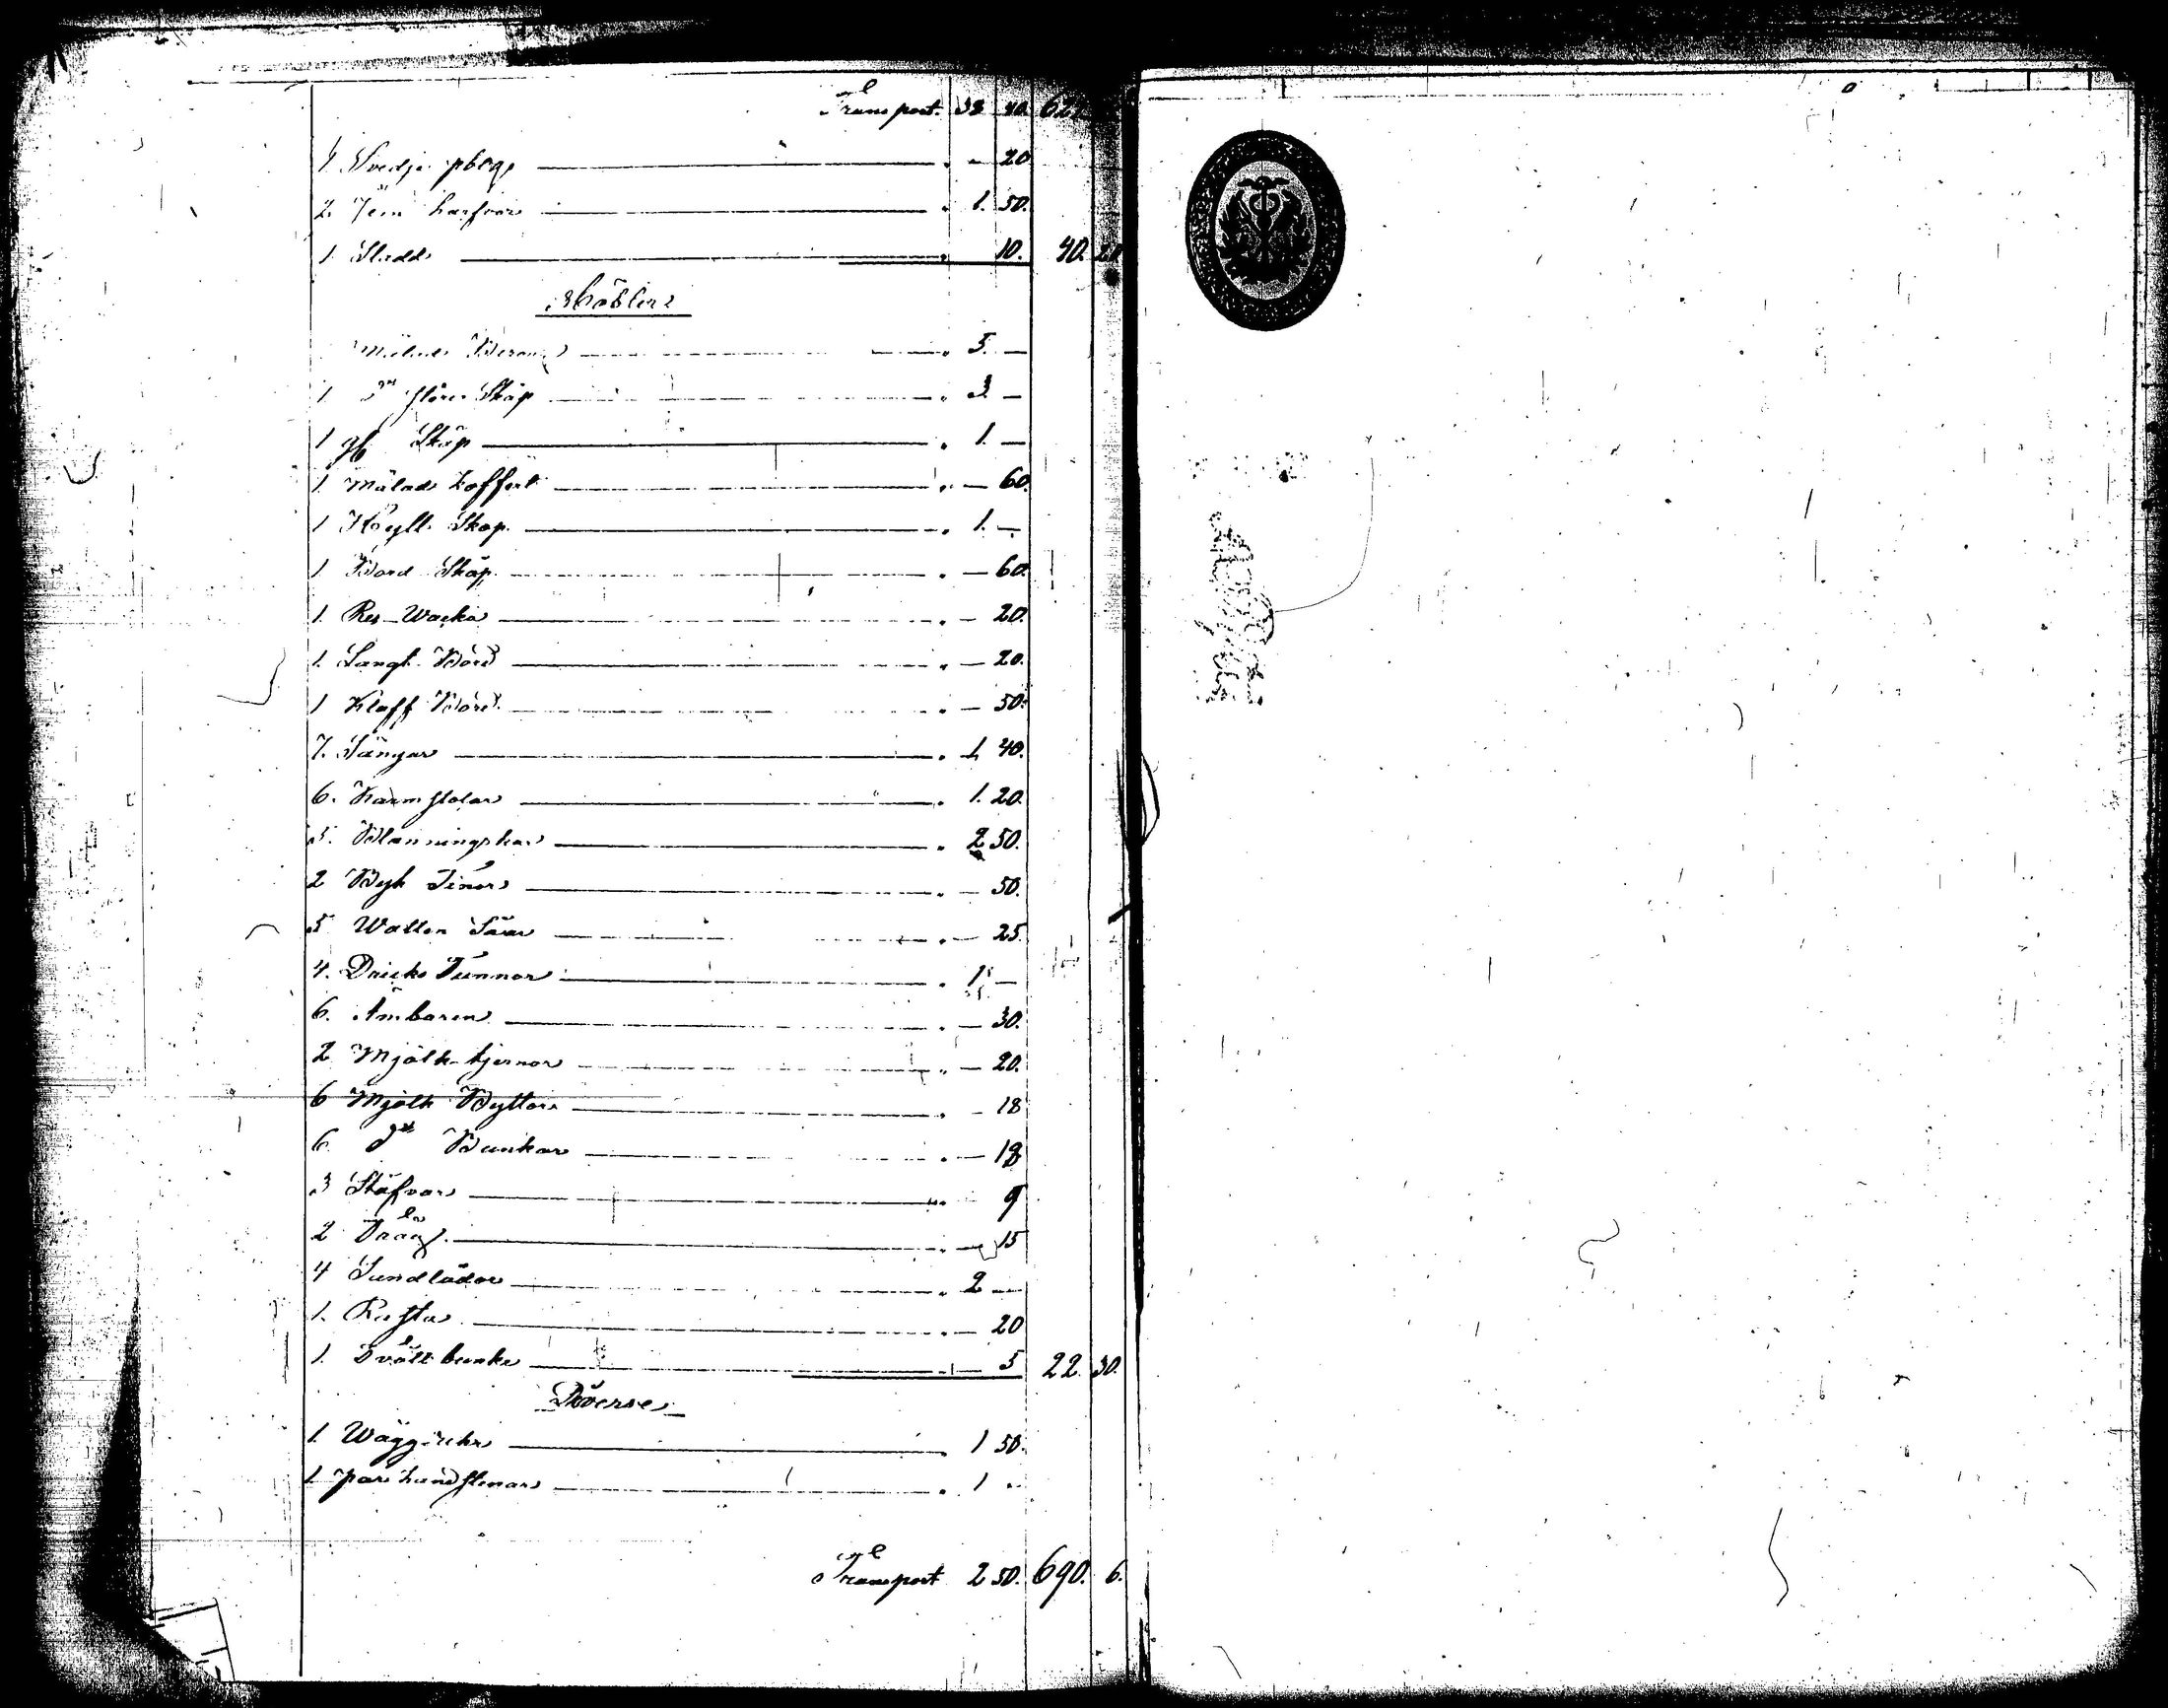 Transport. 38 40. 62
1 Svedje plog " — 20
2. Jern harfvor " 1. 50.
1. Sladd " 10. 40. 20
Möbler
Målad " 5. —
1 Dº större Skåp " 3. —
1 gl Skåp " 1. —
1. Målad Koffert " — 60.
1 Hyll Skåp " 1. —
1 Bord Skåp " — 60.
1. Res-Wacka " — 20.
1. Långt Bord " — 20.
1 Klaff Bord " — 50.
7. Sängar " 1 40.
6. Karmstolar " 1. 20.
5. Blanningskar " 2 50.
2 Byk Tinor " — 50.
5 Watten Såar " — 25
4. Dricks Tunnor " 1 —
6. Ämbaren " — 30.
2 Mjölk-kjernor " — 20.
6 Mjölk Byttor " — 18
6 Dº Bunkar " — 18
3 Stäfvor " 9
2 Tråg " — 15
4 Sundlådor " 2 —
1. Rusta " — 20
1. Tvätt bunke — 5 22. 30.
Diverse
1. Wägguhr " 1 50.
1 par handstenar " 1 "
Transport 2 50. 690. 6.